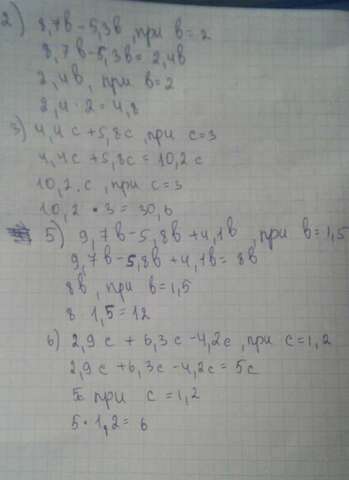 2) 8,7в - 5,3в, при в = 2
8,7в - 5,3в = 2,4в
2,4в, при в = 2
2,4 · 2 = 4,8
3) 4,4с + 5,8с, при с = 3
4,4с + 5,8с = 10,2с
10,2 · с, при с = 3
10,2 · 3 = 30,6
5) 9,7в - 5,8в + 4,1в, при в = 1,5
9,7в - 5,8в + 4,1в = 8в
8в, при в = 1,5
8 · 1,5 = 12
6) 2,9с + 6,3с - 4,2с, при с = 1,2
2,9с + 6,3с - 4,2с = 5с
5с при с = 1,2
5 · 1,2 = 6